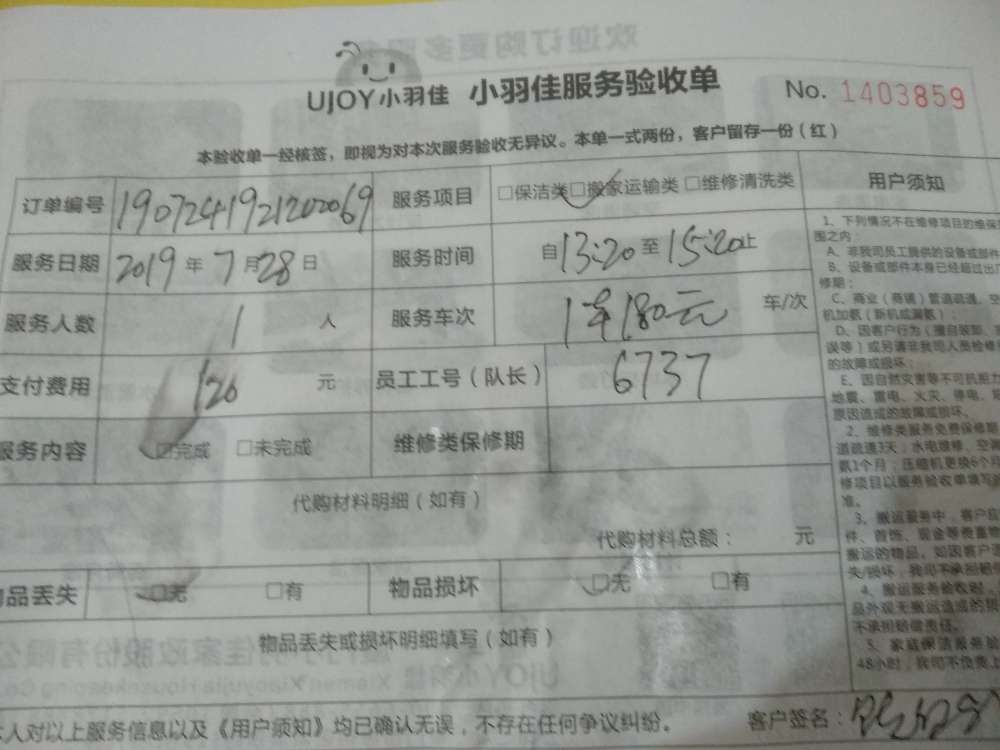 UJOY小羽佳 小羽佳服务验收单 No. 1403859
本验收单一经核签，即视为对本次服务验收无异议。本单一式两份，客户留存一份（红）
订单编号 190724192120069 服务项目 □保洁类 □搬家运输类 □维修清洗类 用户须知
服务日期 2019年7月28日 服务时间 自13:20至15:20止
服务人数 1 人 服务车次 1车180元 车/次
支付费用 120 元 员工工号（队长） 6737
服务内容 □完成 □未完成 维修类保修期
代购材料明细（如有）
代购材料总额： 元
品丢失 □无 □有 物品损坏 □无 □有
物品丢失或损坏明细填写（如有）
人对以上服务信息以及《用户须知》均已确认无误，不存在任何争议纠纷。 客户签名：
1、下列情况不在维修项目的维保
围之内：
A、非我司员工提供的设备或部件
B、设备或部件本身已经超过出
修期；
C、商业（商铺）管道疏通、空
机加氨（新机或漏氨）；
D、因客户行为（擅自装卸、
误等）或另请非我司人员检修
的故障或损坏；
E、因自然灾害等不可抗力
地震、雷电、火灾、停电、
原因造成的故障或损坏。
2、维修类服务免费保修期
道疏通3天；水电维修、空
氨1个月；压缩机更换6个月
修项目以服务验收单填写
准。
3、搬运服务中，客户应
件、首饰、现金等贵重物
搬运的物品，如因客户
失/损坏，我司不承担赔
4、搬运服务验收时，
品外观无搬运造成的损
不承担赔偿责任。
5、家庭保洁服务
48小时，我司不负责